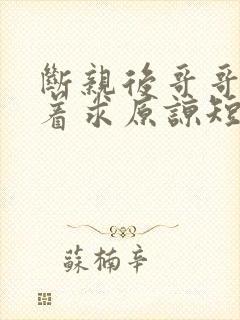 斷親後哥哥
着求原諒短
蘇楠辛